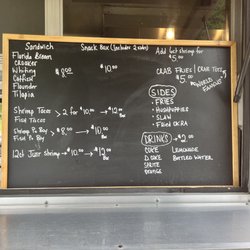 Sandwich Snack Box (Includes 2 sides) Add 6ct shrimp for $5.00
Florida Bream
Croaker
Whiting $8.00 $10.00
Catfish
Flounder
Tilapia
CRAB FRIES / CRAB TOTS
$5.00
"WORLD FAMOUS"
SIDES
• FRIES
• HUSHPUPPIES
• SLAW
• Fried OKRA
Shrimp Tacos > 2 for $10.00 → $12.00 Box
Fish Tacos
Shrimp Po Boy > $8.00 → $10.00 Box
Fish Po Boy
12ct Just shrimp → $10.00 → $12.00 Box
DRINKS $2.00
COKE LEMONADE
D. COKE BOTTLED WATER
SPRITE
ORANGE